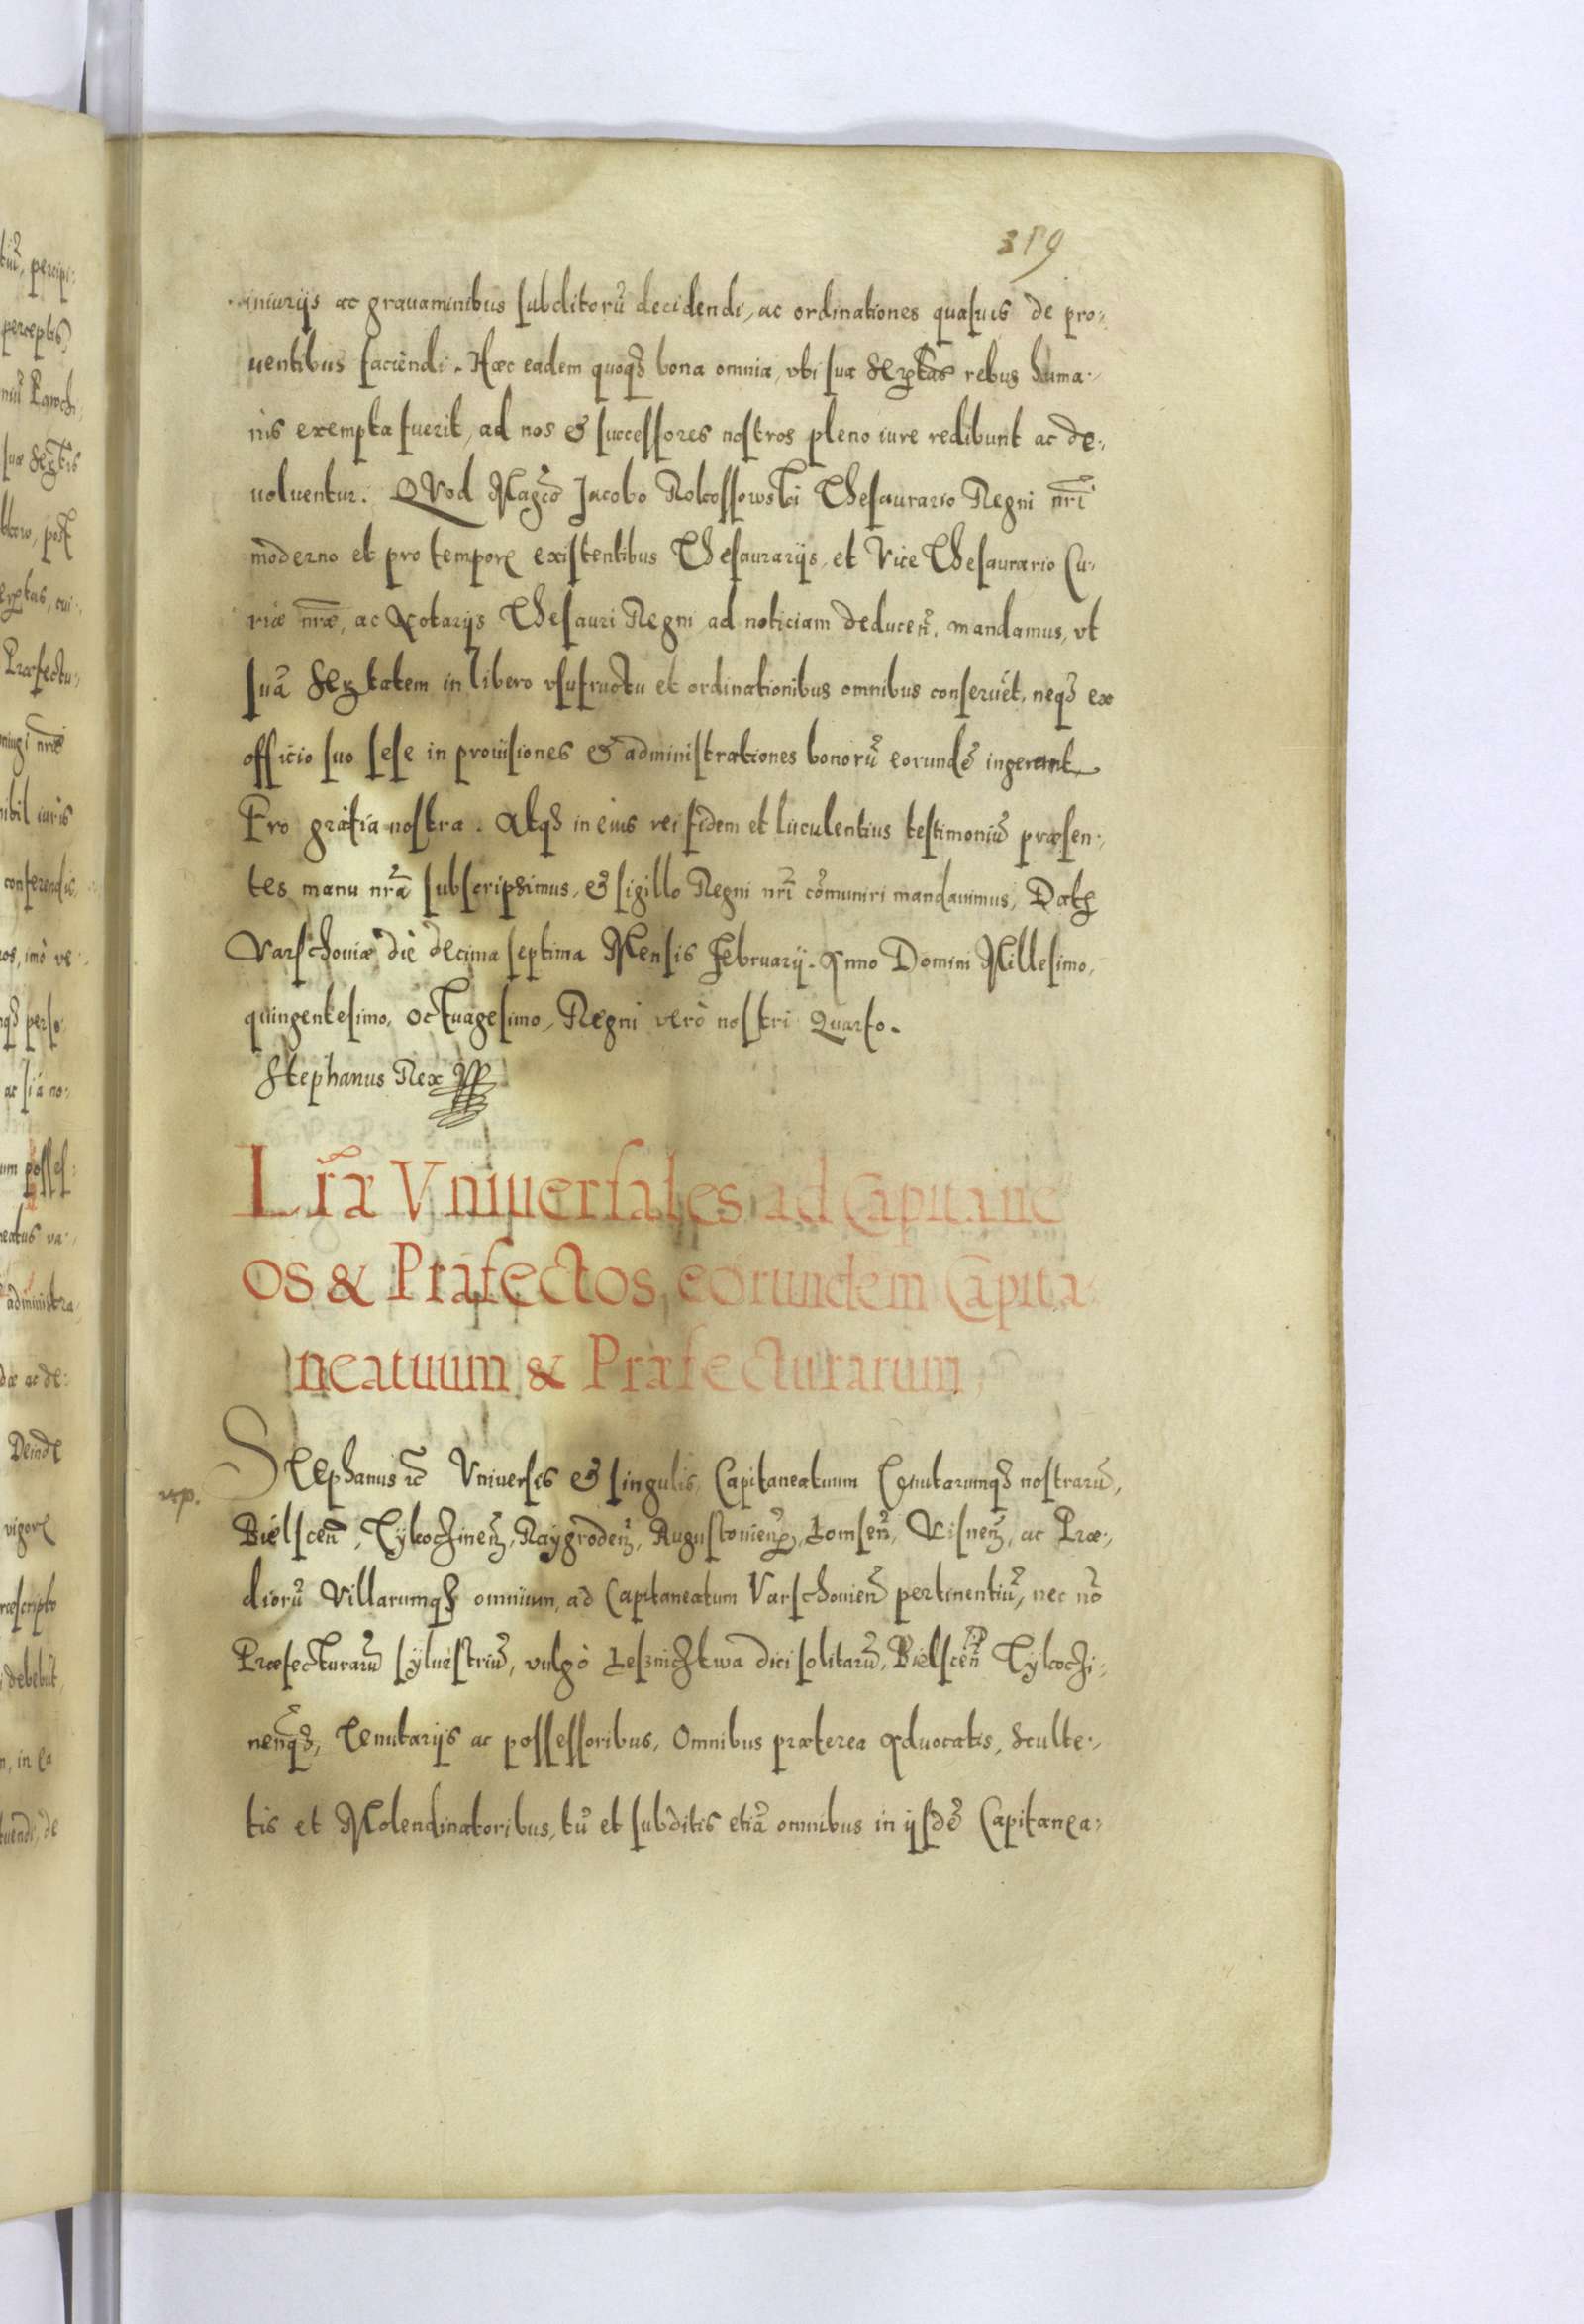 319
iniurijs ac grauaminibus subditorũ decidendi, ac ordinationes quasuis de pro:
uentibus faciendi. Hæc eadem quoqꝫ bona omnia, vbi sua Serᵗᵃˢ rebus huma:
nis exempta fuerit, ad nos & successores nostros pleno iure redibunt ac de:
uoluentur. QVod Magco Jacobo Rokossowski Thesaurario Regni nr̃i
moderno et pro tempore existentibus Thesaurarijs, et Vice Thesaurario Cu:
riæ nr̃æ, ac Notarijs Thesauri Regni ad noticiam deducen̄, mandamus, vt
suã Sertatem in libero vsufructu et ordinationibus omnibus conseruẽt, neqꝫ ex
officio suo sese in prouisiones & administrationes bonorũ eorundẽ ingerant
Pro gratia nostra. Atqꝫ in eius rei fidem et luculentius testimoniũ præsen:
tes manu nr̃a subscripsimus, & sigillo Regni nr̃i cõmuniri mandauimus, Datꝭ
Varschouiæ die decima septima Mensis February. Anno Domini Millesimo,
quingentesimo, octuagesimo, Regni verò nostri Quarto.
Stephanus Rex
Lr̃æ Vniuersales ad Capitane
os & Præfectos eorundem Capita:
neatuum & Præfecturarum
Stephanus ꝛc̃ Vniuersis & singulis, Capitaneatuum Tenutarumqꝫ nostrarũ,
Bielscen̄, Tykocinen̄, Raygroden̄, Augustouien̄, Lomsen̄, Visnen̄, ac Præ:
diorũ Villarumqꝫ omnium, ad Capitaneatum Varschouien̄ pertinentiũ, nec nõ
Præfecturarũ syluestriũ, vulgò Lesnicztwa dici solitarũ, Bielscen̄ Tykoci:
nen̄qꝫ, Tenutarijs ac possessoribus, Omnibus præterea Aduocatis, Sculte:
tis et Molendinatoribus, tũ et subditis etiã omnibus in ijsdẽ Capitanea: